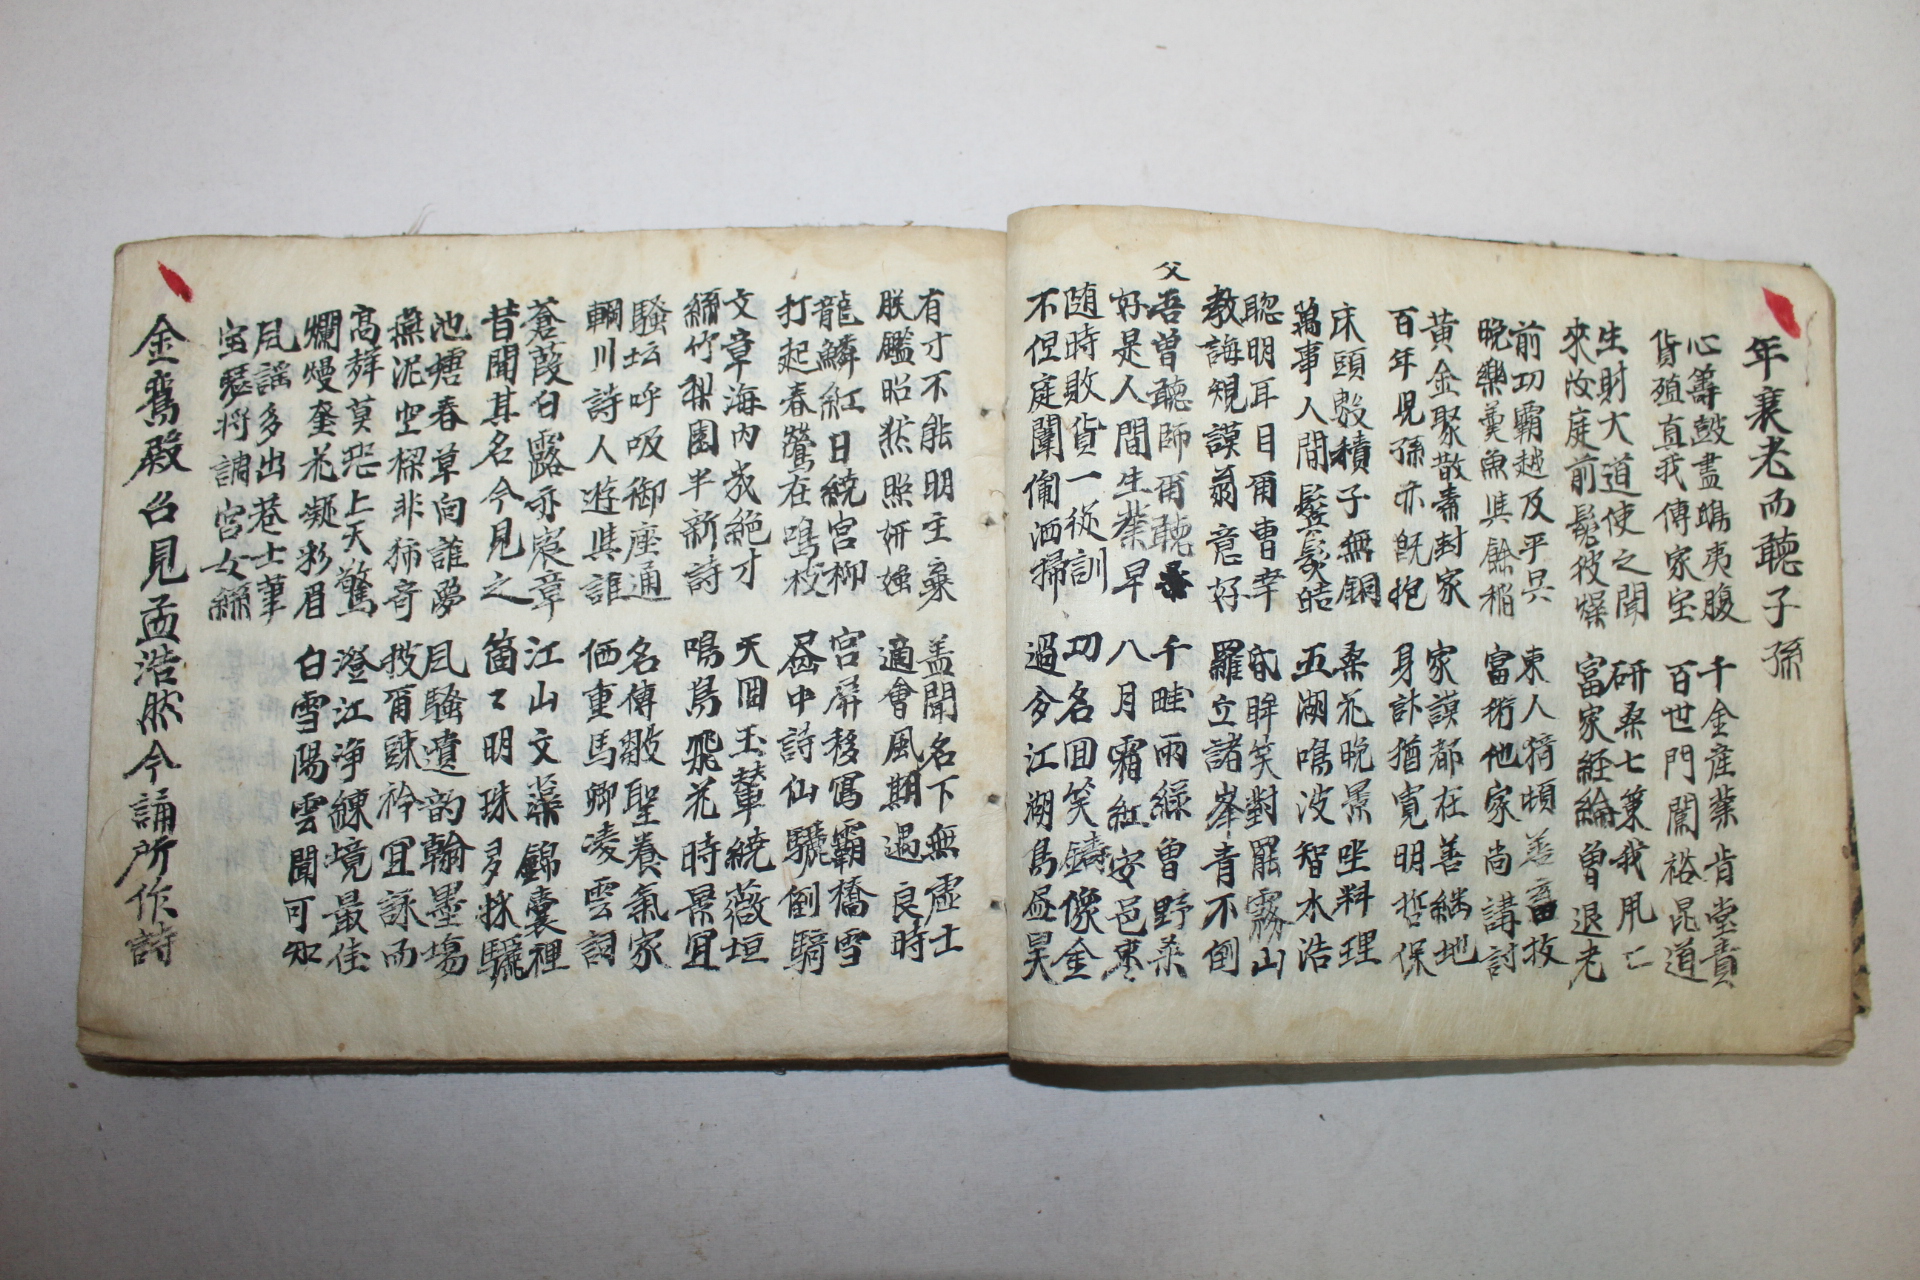 年衰老而聽子孫
心籌鼓盡鴟夷腹 千金産業肯堂責
貨殖直我傳家宝 百世門闌裕昆道
生財大道使之聞 研桑七策我用亡
來汝庭前髮彼燥 富家経綸曾退老
前功霸越及平吳 東人猗頓善畜牧
晩樂羹魚與餘稻 富術他家尚講討
黃金聚散素封家 家謨都在善継地
百年見孫亦旣抱 身計猶寬明哲保
床頭数積子無銅 桑花晩景坐料理
萬事人間鬓髮皓 五湖鳴波智水浩
聡明耳目爾曹幸 昏眸笑對罷霧山
教誨規謨翁意好 羅立諸峯青不倒
父
吾曾聽師爾聽 千畦雨綠曾野桒
好是人間生業早 八月霜紅安邑棗
随時敗貨一從訓 功名回笑鑄像金
不但庭闈備洒掃 過分江湖烏昊
有才不能明主棄 盖聞名下無虛士
朕鑑昭然照姸媸 適會風期遇良時
龍鱗紅日繞宮柳 宮屛移寫霸橋雪
打起春鶯在鳴枝 中詩仙驢倒騎
文章海內幾絶才 天回玉輦繞薇垣
絲竹梨園半新詩 鳴鳥飛花時景宜
騷坛呼吸御座通 名傳鄒聖養氣家
輞川詩人遊與誰 価重馬卿凌雲詞
蒼葭白露亦宸章 江山文藻錦囊裡
昔聞其名今見之 箇〻明珠多採驪
池塘春草向誰夢 風騷遺韵翰墨場
燕泥空樑非奇 披爾疎衿宜詠而
高聲莫恐上天驚 澄江浄練境最佳
爛熳奎花凝彩眉 白雪陽雲聞可知
風謠多出巷士筆
宝瑟將調宮女絲
金鸞殿召見孟浩然今誦所作詩